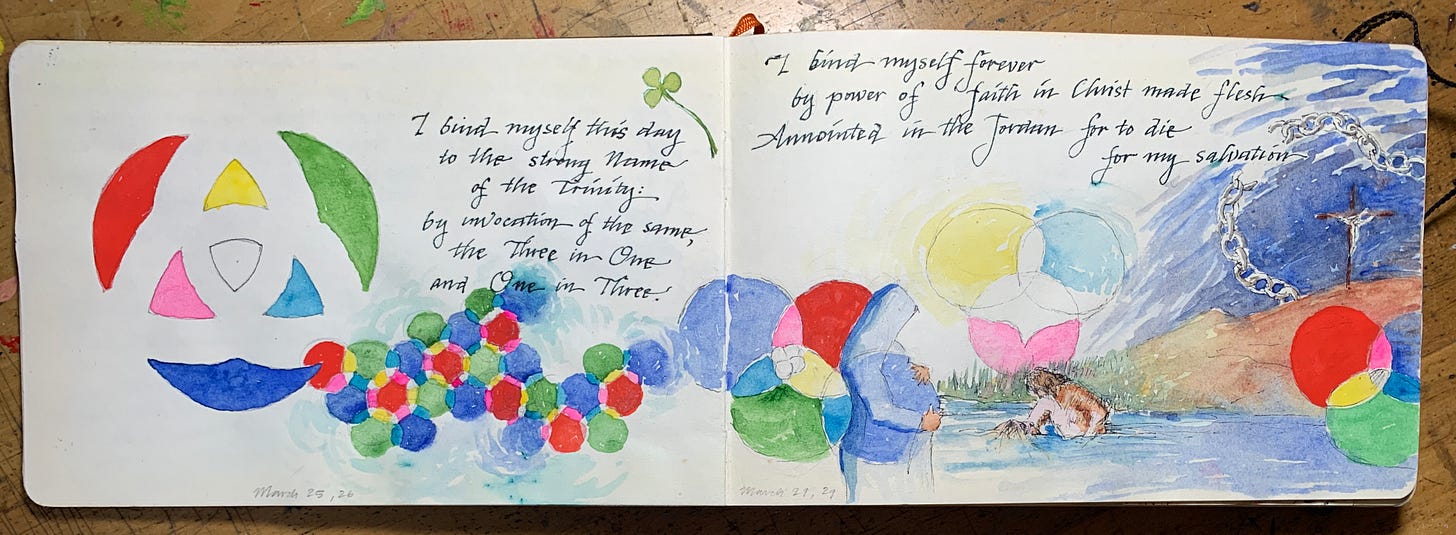 I bind myself this day
to the strong Name
of the Trinity:
by invocation of the same,
the Three in One
and One in Three.
March 25, 26
I bind myself forever
by power of faith in Christ made flesh
Annointed in the Jordan for to die
for my salvation
March 27, 29